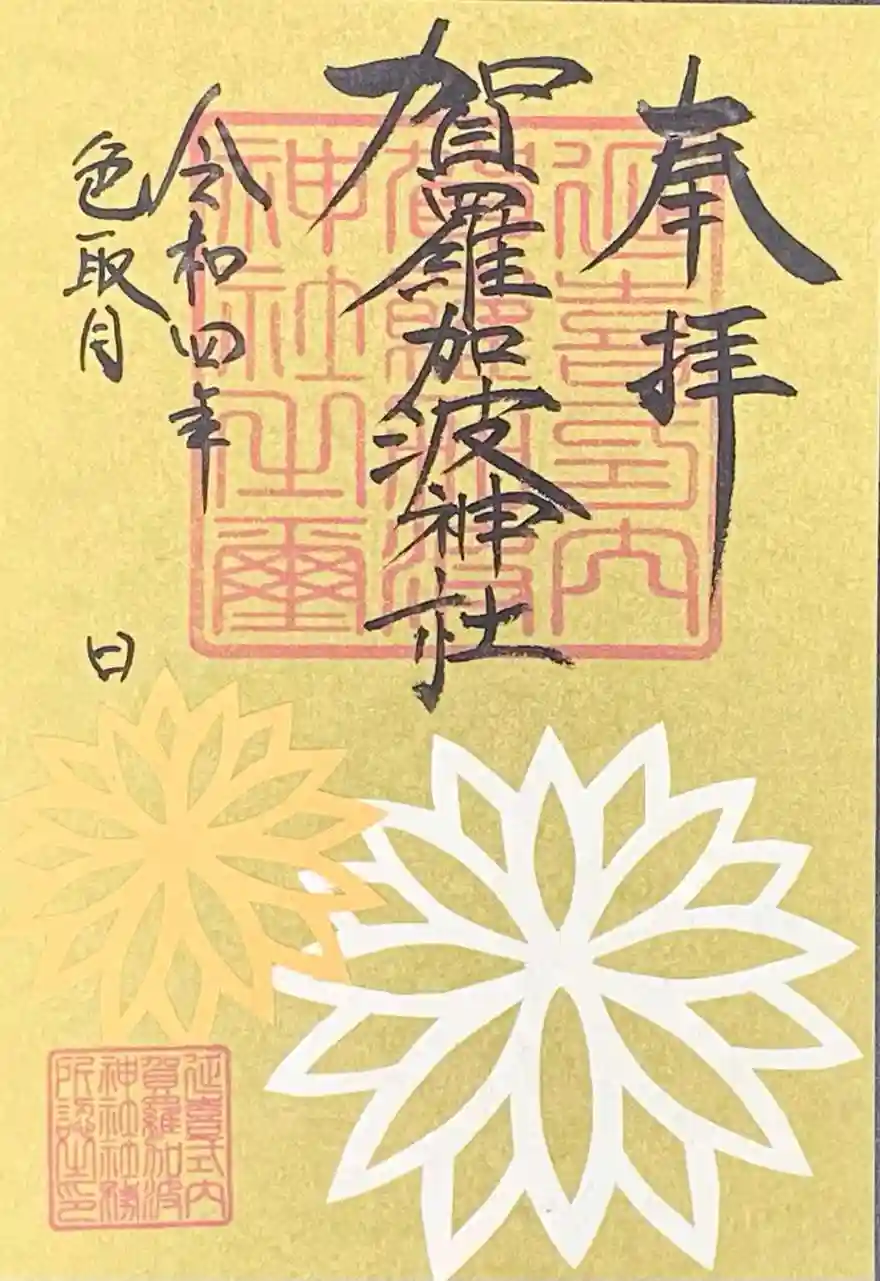 奉拝
賀羅加波神社
令和四年
色取月
日
延喜式内
賀羅加波
神社之璽
延喜式内
賀羅加波
神社社務
所認之印